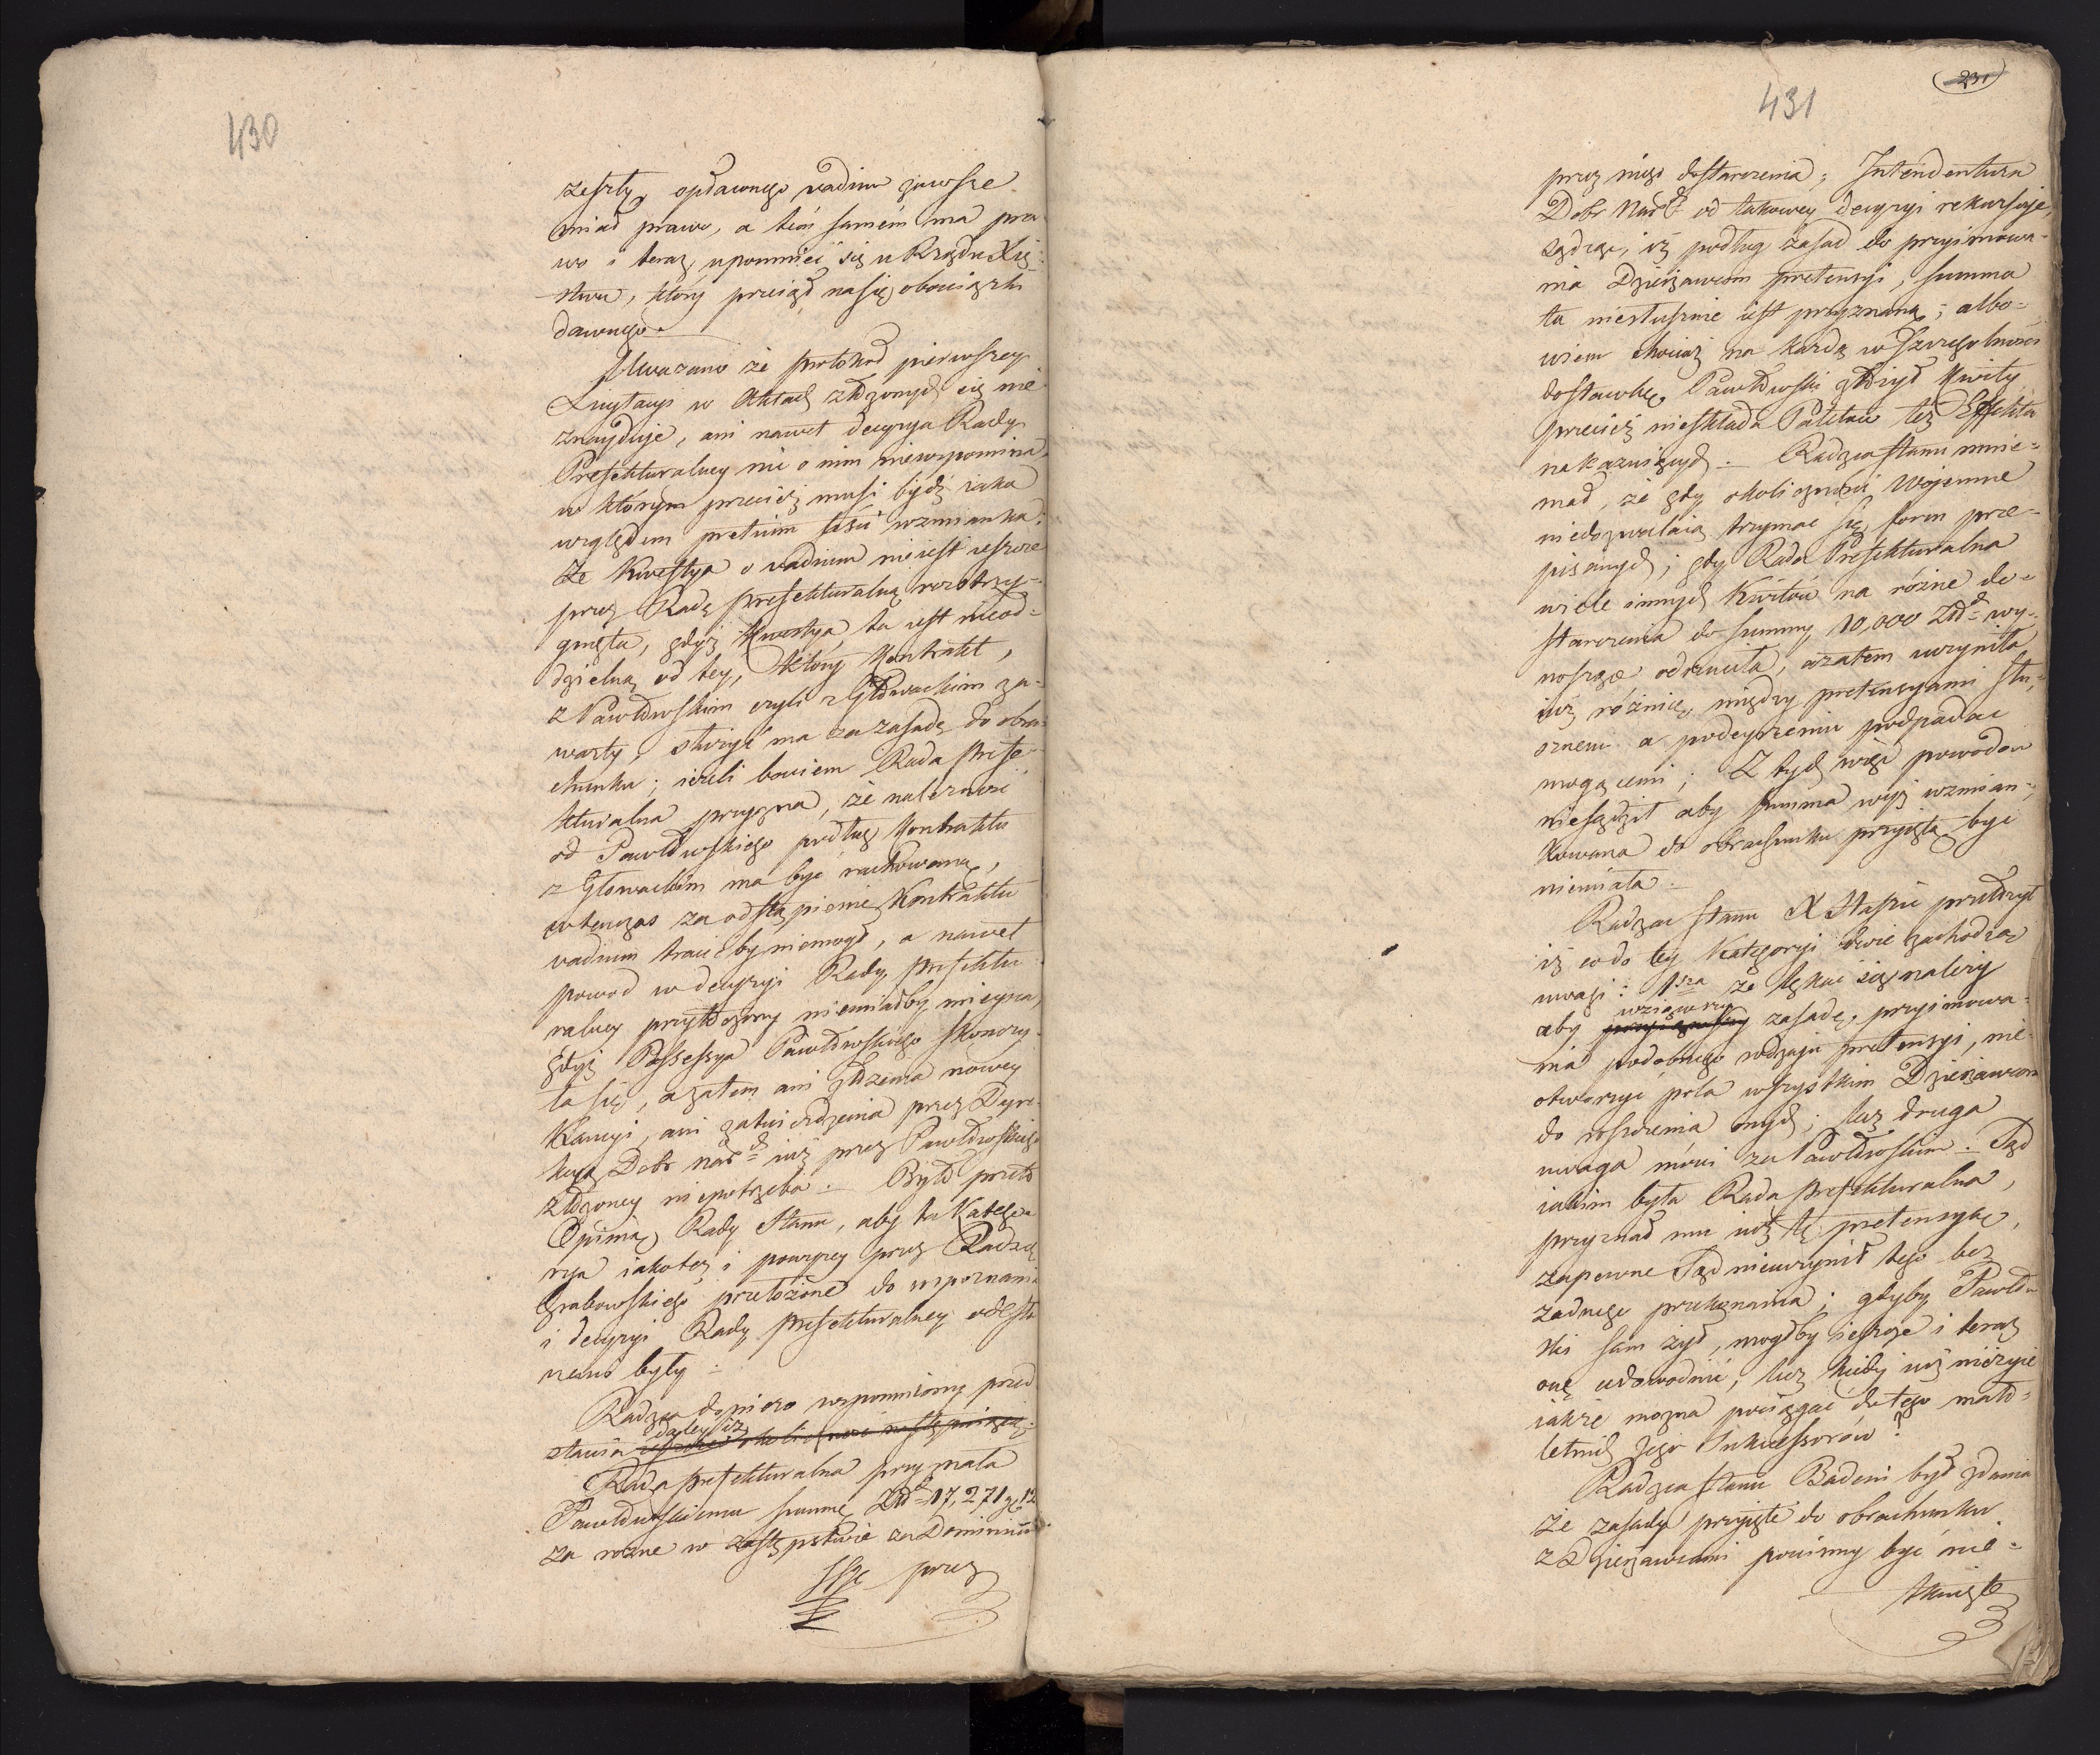 430
zeszły, opisanego vadium zawsze
miał prawo, a tém samém ma pra-
wo i teraz upomnieć się u Rządu Xię-
stwa, który przeiął na się obowiązki
dawnego.
Uważano że protokoł pierwszey
Licytacyi w Aktach złożonych się nie
znayduje, ani nawet decyzya Rady
Prefekturalney nic o nim niewspomina
w którym przecież musi bydź iaka
względem pretium wzmianka;
Że kwestya o vadium nieiest ieszcze
przez Radę prefekturalną rozstrzy-
gnięta, gdyż kwestya ta iest nieod-
dzielną od tey, który Kontrakt,
z Pawłowskim czyli z Głowackim za-
warty, służyć ma za zasadę do obra-
chunku; ieżeli bowiem Rada prefe-
kturalna przyzna, że należność
od Pawłowskiego podług Kontraktu
z Głowackim ma być rachowaną,
wtenczas za odstąpienie Kontraktu
vadium tracićby niemogł, a nawet
powod w decyzyi Rady prefektu-
ralney przytoczony niemiałby mieysca,
gdyż Possessya Pawłowskiego skończy-
ła się, a zatem ani złożenia nowey
Kaucyi, ani zatwierdzenia przez Dyre-
kcyą Dobr nar: iuż przez Pawłowskiego
złożoney niepotrzeba. Było przeto
Opinią Rady Stanu, aby ta Katego-
rya iakoteż i powyżey przez Radzcę
Grabowskiego przełożone do rozpoznania
i decyzyi Rady prefekturalney odesła-
nemi były.
Radzca dopiero wspomniony przed-
stawia daley iż
Rada prefekturalna przyznała
Pawłowskiemu summę Zł: 17,271 g. 12
za rożne w zastępstwie za Dominium
przez
231
431
przez niego dostarczenia; Intendentura
Dobr Nar: od takowey decyzyi rekursuje,
sądząc, iż podług zasad do przyimowa-
nia Dzierżawcom pretensyi, summa
ta niesłusznie iest przyznaną; albo-
wiem chociaż na każdą w szczegolności
dostawkę, Pawłowski złożył kwity
przecież nieskłada Paletow też Effekta
nakazuiących. Radzca stanu mnie-
mał, że gdy okoliczności woienne
niedozwalaią trzymać się form prze-
pisanych; gdy Rada Prefekturalna
wiele innych Kwitow na różne do-
starczenia do summy 10,000 Zł: wy-
noszące odrzuciła, a zatem uczyniła
iuż różnicę między pretensyami słu-
sznemi a podeyrzeniu podpadać
mogącemi; Z tych więc powodow
niesądził aby summa wyż wzmian-
kowana do obrachunku przyiętą być
niemiała.
Radzca stanu X Staszic przełożył
iż co do tey Kategoryi dwie zachodzą
uwagi: 1sza że lękać się należy
aby wziąwszy zasadę przyimowa-
nia podobnego rodzaju pretensyi, nie
otworzyć pola wszystkim Dzierżawcom
do roszczenia onych; lecz druga
uwaga mówi za Pawłowskim. Sąd
iakim była Rada prefekturalna,
przyznał mu iuż tę pretensyą,
zapewne Sąd nieuczynił tego bez
żadnego przekonania; gdyby Pawłow-
ski sam żył, mogłby ieszcze i teraz
onę udowodnić, lecz kiedy iuż nieżyie
iakże można pociągać do tego mało-
letnich Jego Sukcessorów?
Radzca stanu Badeni był zdania
że zasady przyięte do obrachunku
z Dzierżawcami powinny być nie-
tknięte